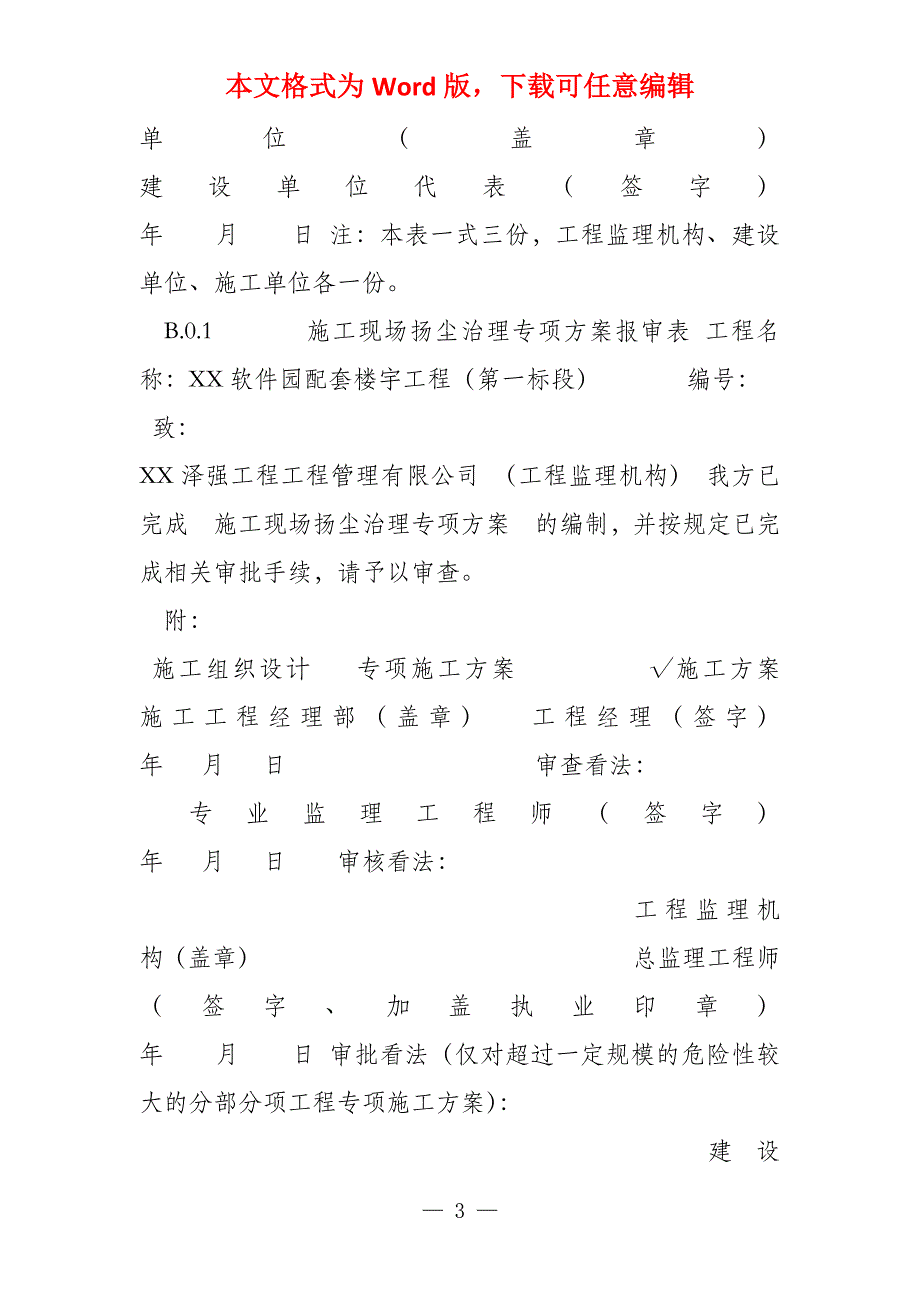 本文格式为 Word 版，下载可任意编辑
单位（盖章）
建设单位代表（签字）
年 月 日 注：本表一式三份，工程监理机构、建设
单位、施工单位各一份。
B.0.1 施工现场扬尘治理专项方案报审表 工程名
称：XX 软件园配套楼宇工程（第一标段） 编号：
致：
XX 泽强工程工程管理有限公司 （工程监理机构） 我方已
完成 施工现场扬尘治理专项方案 的编制，并按规定已完
成相关审批手续，请予以审查。
附：
施工组织设计 专项施工方案 √施工方案
施工工程经理部（盖章） 工程经理（签字）
年 月 日 审查看法：
专业监理工程师（签字）
年 月 日 审核看法：
工程监理机
构（盖章） 总监理工程师
（签字、加盖执业印章）
年 月 日 审批看法（仅对超过一定规模的危险性较
大的分部分项工程专项施工方案）：
建 设
— 3 —